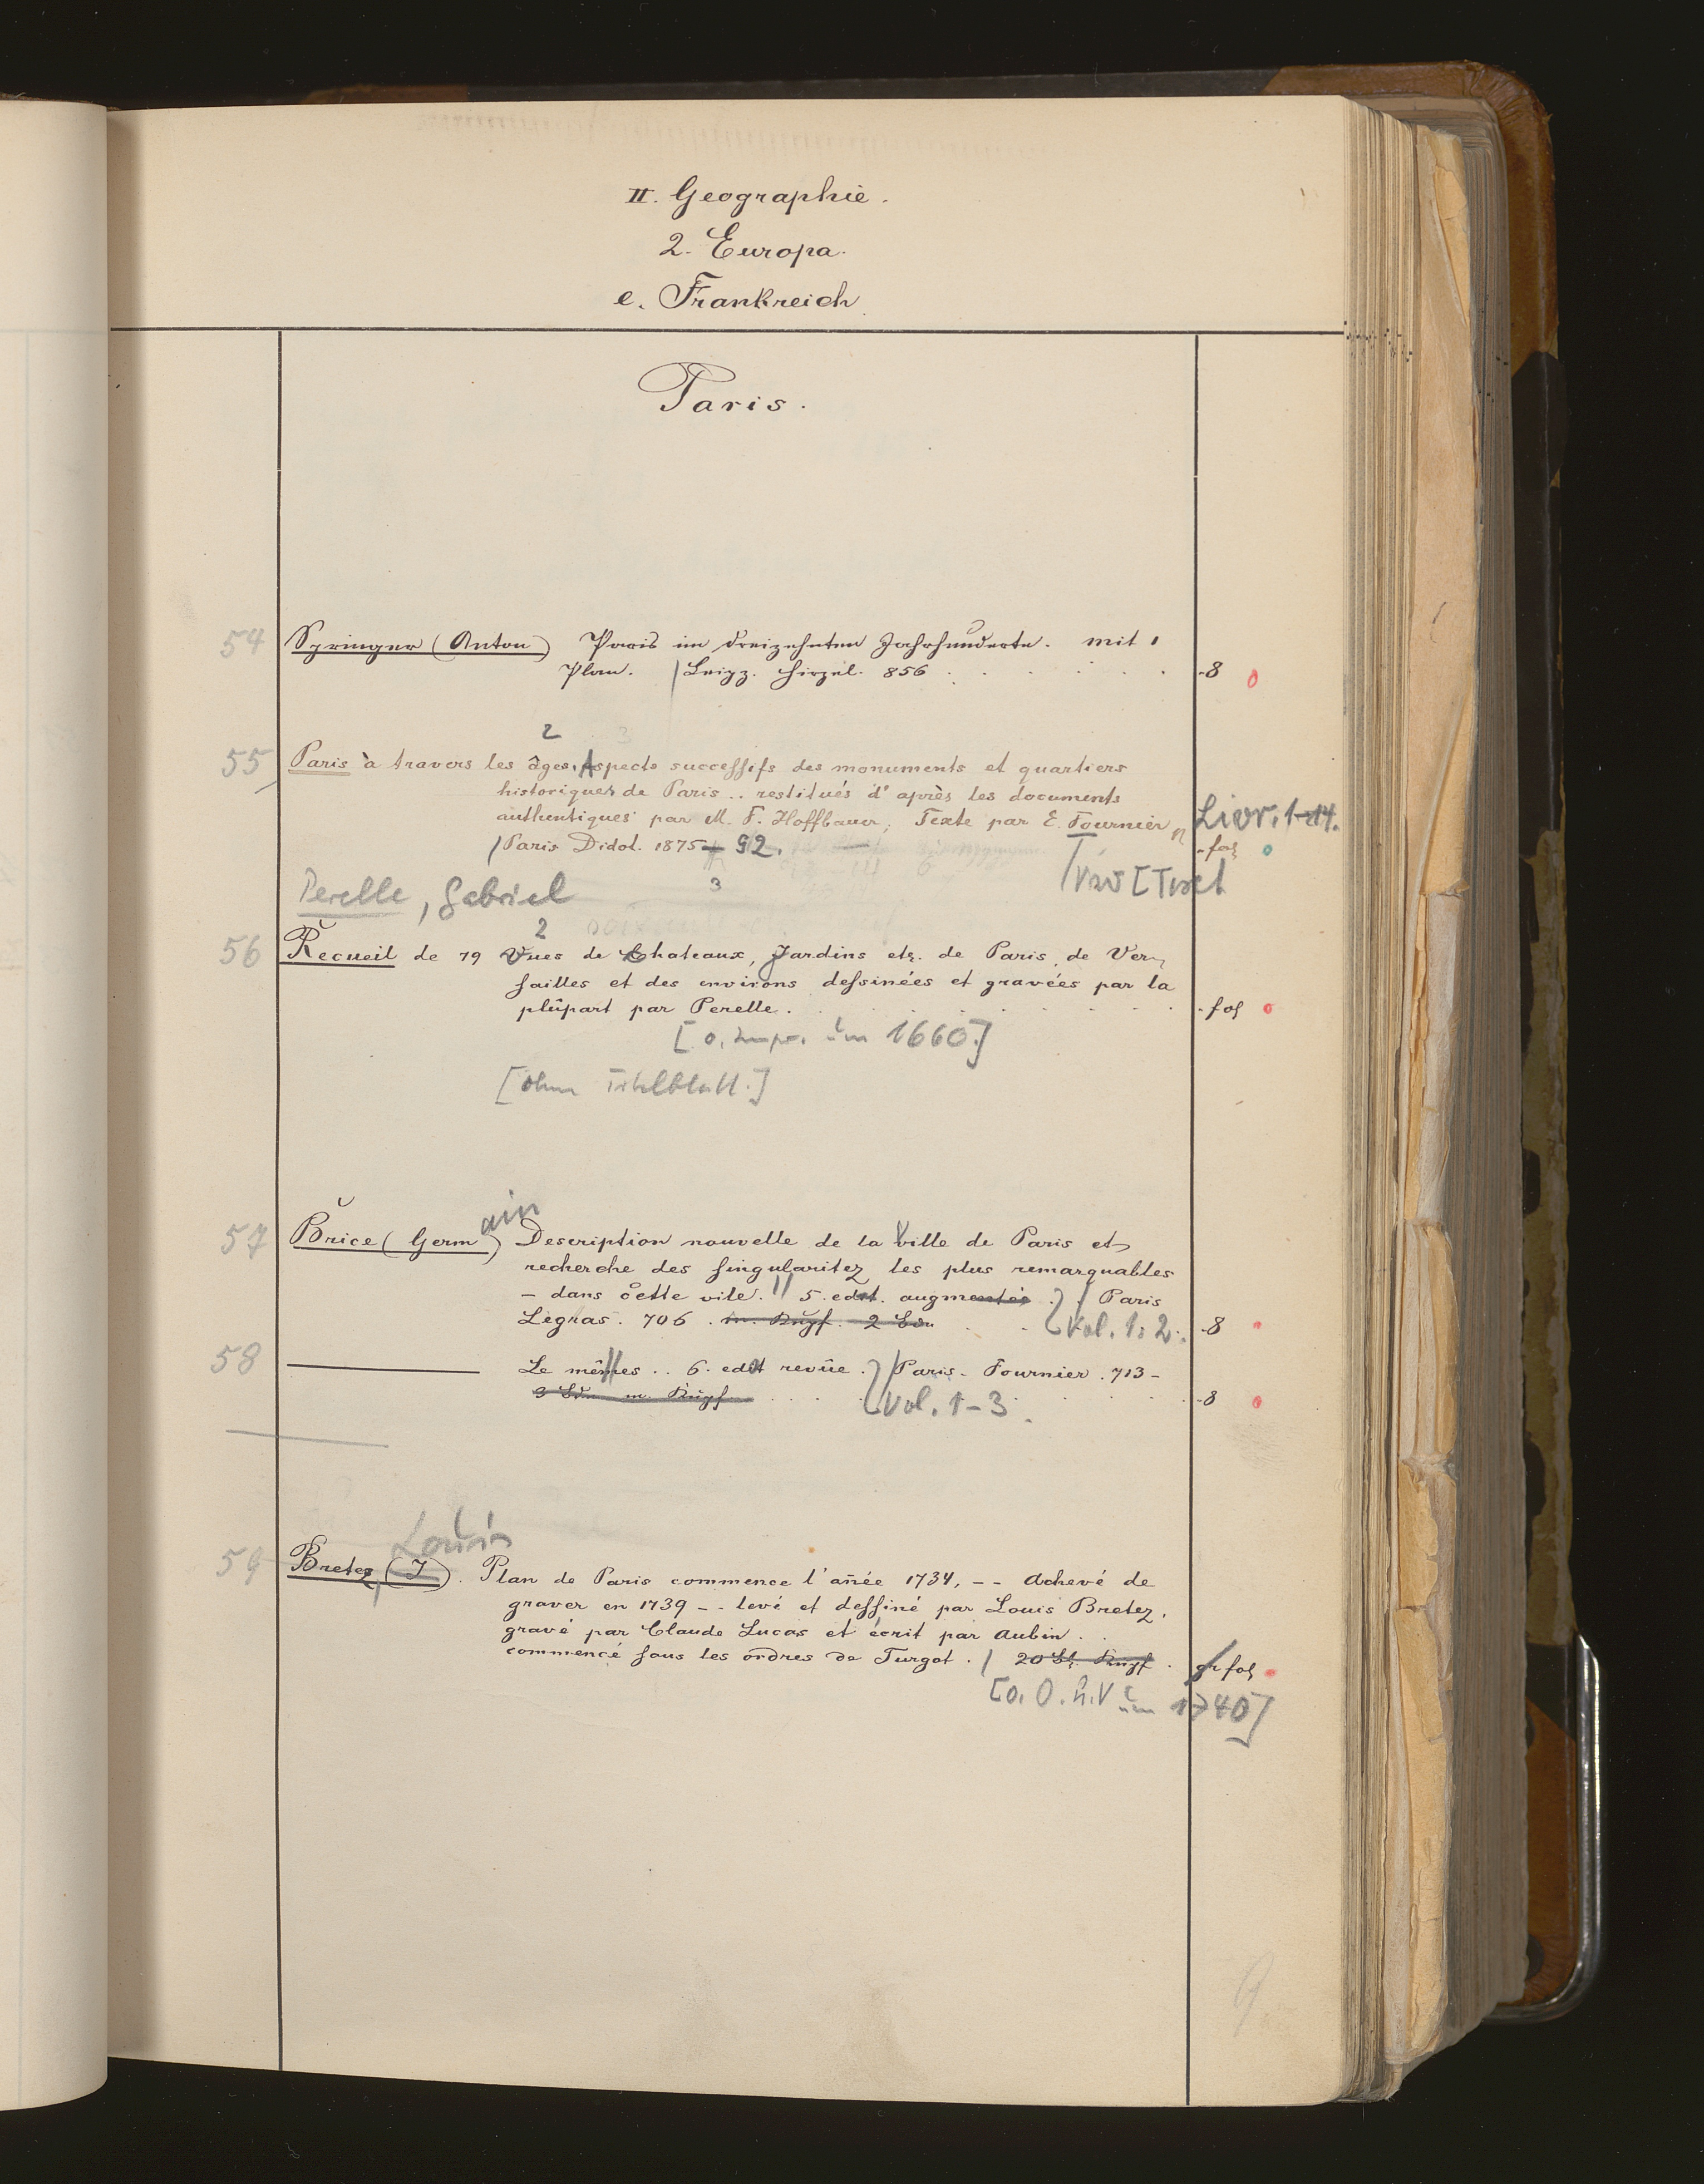 II. Geographie.
2. Europa.
e. Frankreich.
Paris.
54 Springer (Anton) Paris im dreizehnten Jahrhunderte. mit 1
Plan. / Leipz. Hirzel. 856 . . . . . 8
2
55 Paris à travers les âges. Aspects successifs des monuments et quartiers
historiques de Paris .. restitués d'après les documents
authentiques par M. F. Hoffbauer, Texte par E. Fournier Livr. 1-14.
/ Paris Didot. 1875 - 92. fol
3
Perelle, Gabriel
2
56 Recueil de 79 Vues de Chateaux, Jardins etc. de Paris, de Ver-
sailles et des environs dessinées et gravées par la
plûpart par Perelle. . . . . fol
[o. Impr. um 1660.]
[ohne Titelblatt.]
57 Brice (Germain) Description nouvelle de la Ville de Paris et
recherche des singularitez les plus remarquables
- dans cette vile. // 5. edit. augmentée . / Paris
Legras. 706 . m. Kupf. 2 Bde. Vol. 1. 2. 8
58 ——— Le mêmes .. 6. edit revûe . / Paris. Fournier. 713-
3 Bde m. Kupf. . . . Vol. 1-3. 8
Louis
59 Bretez (J). Plan de Paris commence l'année 1734, -- achevé de
graver en 1739 -- levé et dessiné par Louis Bretez,
gravé par Claude Lucas et écrit par Aubin . .
commencé sous les ordres de Turgot . / 20 Bl. Kupf . gr fol
[o. O. u. V um 1740]